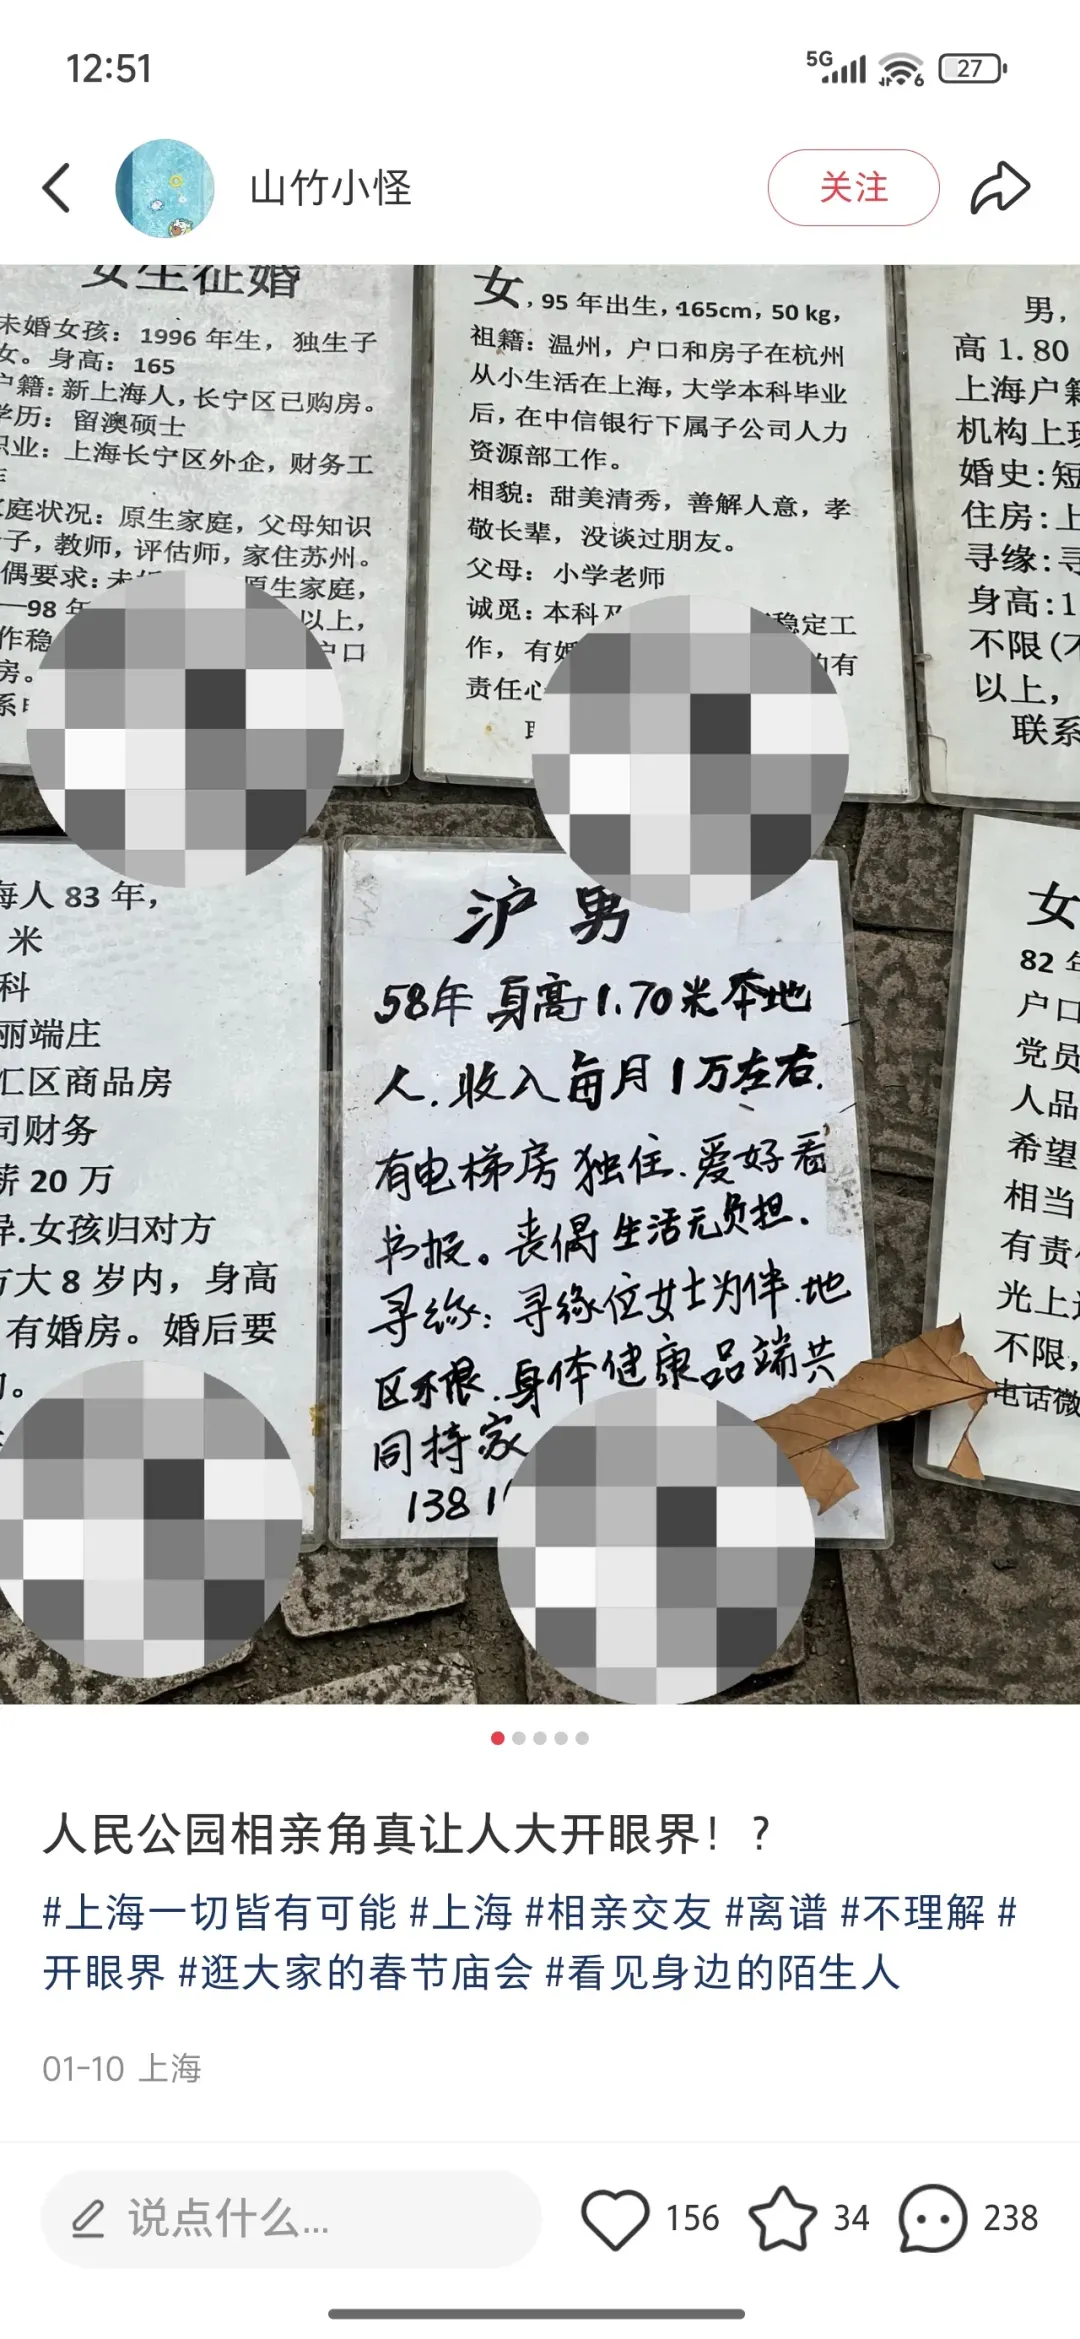 12:51
5G
6
27
山竹小怪
关注
女生征婚
未婚女孩：1996 年生，独生子
女。身高：165
户籍：新上海人，长宁区已购房。
学历：留澳硕士
职业：上海长宁区外企，财务工
家庭状况：原生家庭，父母知识
子，教师，评估师，家住苏州。
偶要求：未
原生家庭，
—98 年
以上，
作稳
户口
房。
女，95 年出生，165cm，50 kg，
祖籍：温州，户口和房子在杭州
从小生活在上海，大学本科毕业
后，在中信银行下属子公司人力
资源部工作。
相貌：甜美清秀，善解人意，孝
敬长辈，没谈过朋友。
父母：小学老师
诚觅：本科及
稳定工
作，有婚
有
责任心
男，
高 1.80
上海户籍
机构上班
婚史：短
住房：上
寻缘：寻
身高：1
不限（不
以上，
联系
海人 83 年，
米
科
丽端庄
汇区商品房
司财务
薪 20 万
异.女孩归对方
方大 8 岁内，身高
有婚房。婚后要
沪 男
58年 身高1.70米本地
人.收入每月1万左右.
有电梯房 独住.爱好看
书报。丧偶 生活无负担.
寻缘：寻缘位女士为伴.地
区不限.身体健康品端共
同持家
138 1
女
82 年
户口
党员
人品
希望
相当
有责
光上
不限，
电话微
人民公园相亲角真让人大开眼界！？
#上海一切皆有可能 #上海 #相亲交友 #离谱 #不理解 #
开眼界 #逛大家的春节庙会 #看见身边的陌生人
01-10 上海
说点什么...
156
34
238